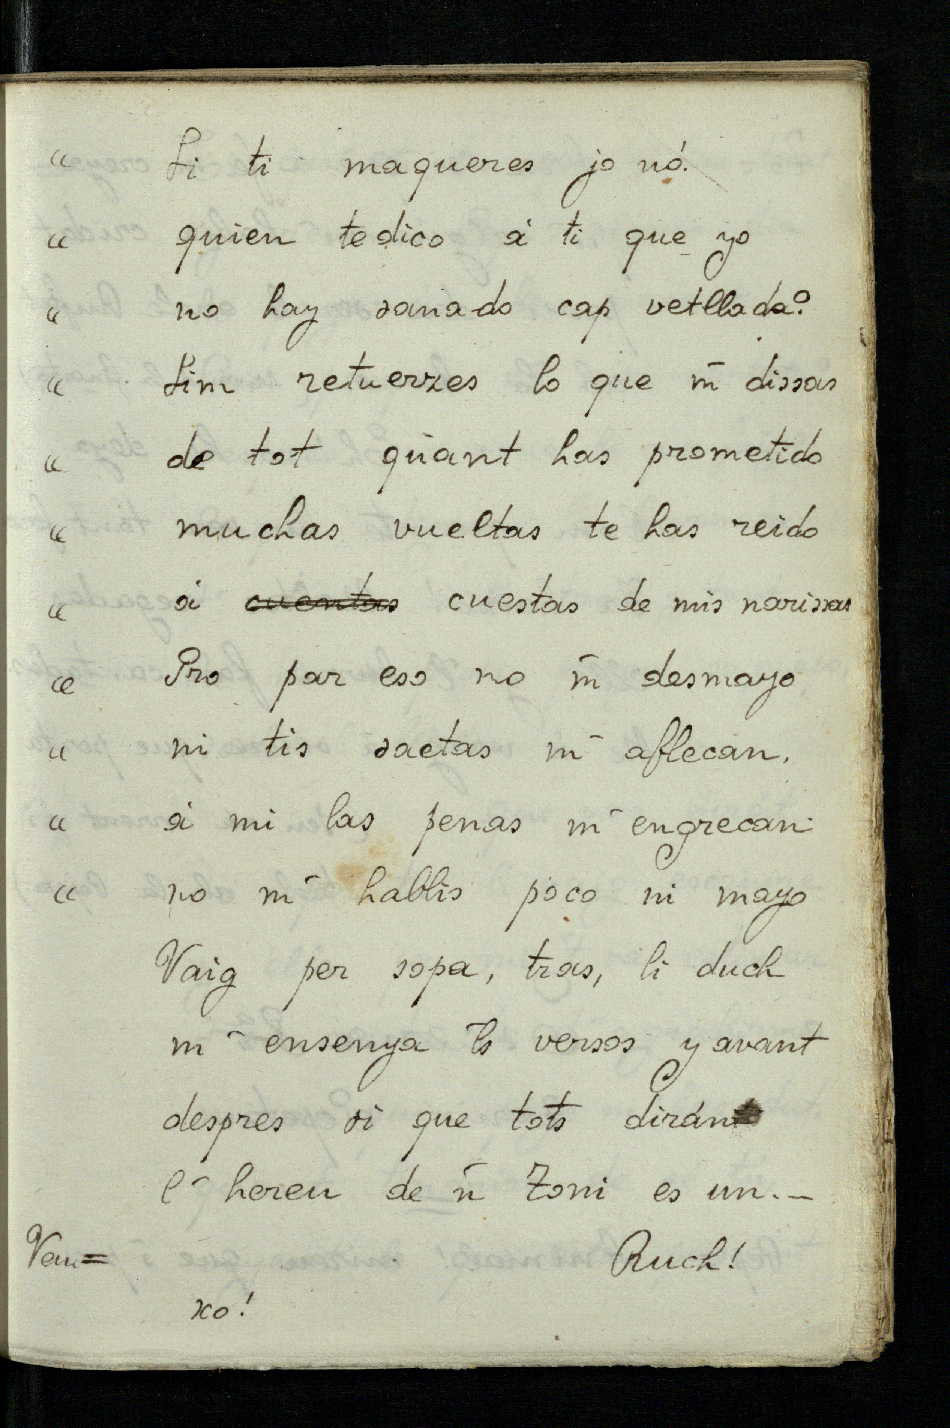 " Si ti maqueres jo nó!
" quien tedico á ti que yo
" no hay sanado cap vetllada?
" Sim retuerzes lo que m̄ dissas
" de tot quant has prometido
" muchas vueltas te has reido
" á cuentas cuestas de mis narissas
" Pro par eso no m̄ desmayo
" ni tis saetas m̄ aflecan.
" á mi las penas m̄ engrecan
" no m̄ hablis poco ni mayo
Vaig per sopa, tras, li duch
m̄ ensenya ls versos y avant
despres si que tots dirán
l¯ hereu de n̄ Toni es un.-
Ven= Ruch!
xo!